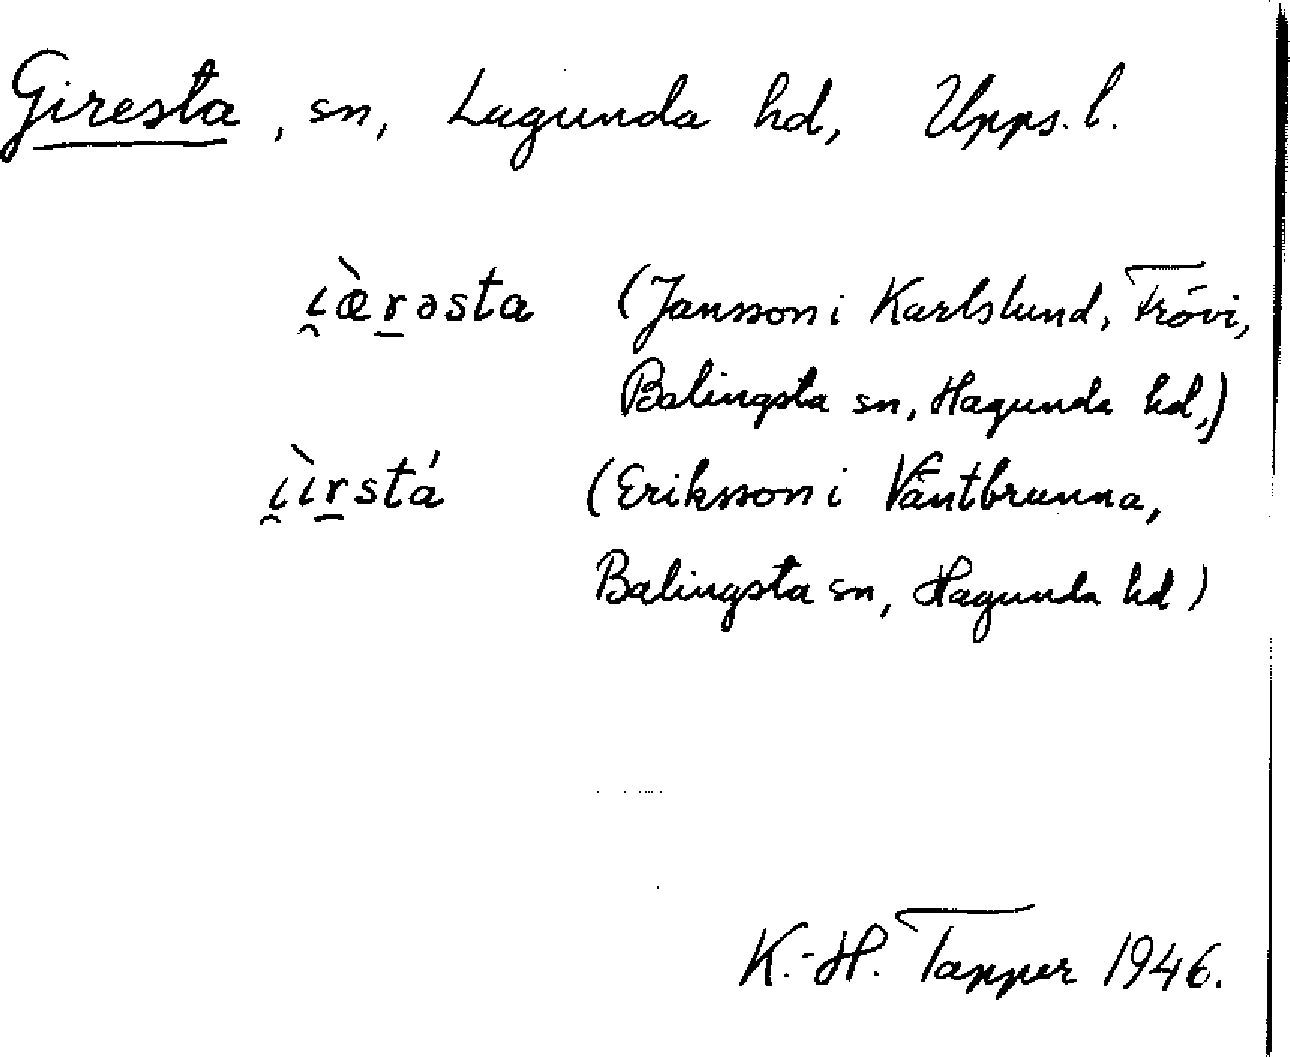 Giresta, sn, Lagunda hd, Upps. l.
i̯æ̀r̠əsta (Jansson i Karlslund, Frövi,
Balingsta sn, Hagunda hd,)
i̯ìr̠stá (Eriksson i Väntbrunna,
Balingsta sn, Hagunda hd)
K.-H. Tapper 1946.